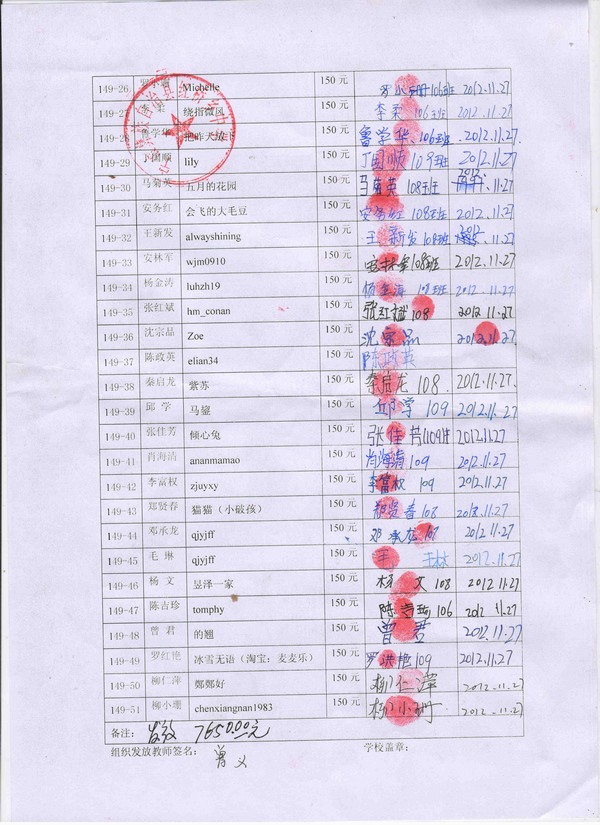 149-26 Michelle 150 元 106班 2012.11.27
149-27 绕指微风 150 元 李柔 106班 2012.11.27
149-28 鲁学华 把昨天 150 元 鲁学华 106班 2012.11.27
149-29 丁国顺 lily 150 元 丁国顺 109班 2012.11.27
149-30 马菊英 五月的花园 150 元 马菊英 108班 2012.11.27
149-31 安务红 会飞的大毛豆 150 元 安务红 108班 2012.11.27
149-32 王新发 alwayshining 150 元 王新发 108班 2012.11.27
149-33 安林军 wjm0910 150 元 安林军 108班 2012.11.27
149-34 杨金涛 luhzh19 150 元 杨金涛 108班 2012.11.27
149-35 张红斌 hm_conan 150 元 张红斌 108 2012.11.27
149-36 沈宗晶 Zoe 150 元 沈宗晶 2012.11.27
149-37 陈政英 elian34 150 元 陈政英
149-38 秦启龙 紫苏 150 元 秦启龙 108 2012.11.27
149-39 邱 学 马鋆 150 元 学 109 2012.11.27
149-40 张佳芳 倾心兔 150 元 张佳芳 109班 2012.11.27
149-41 肖海清 ananmamao 150 元 肖海清 109 2012.11.27
149-42 李富权 zjuyxy 150 元 李富权 109 2012.11.27
149-43 郑贤春 猫猫（小破孩） 150 元 郑贤春 108 2012.11.27
149-44 邓承龙 qjyjff 150 元 邓承龙 107 2012.11.27
149-45 毛 琳 qjyjff 150 元 2012.11.27
149-46 杨 文 昱泽一家 150 元 杨 文 108 2012.11.27
149-47 陈吉珍 tomphy 150 元 陈吉珍 106 2012.11.27
149-48 曾 君 的翘 150 元 曾 君 2012.11.27
149-49 罗红艳 冰雪无语（淘宝：麦麦乐） 150 元 罗洪艳 109 2012.11.27
149-50 柳仁萍 鄭鄭好 150 元 柳仁萍 2012.11.27
149-51 柳小珊 chenxiangnan1983 150 元 柳小珊 2012.11.27
备注： 发放 7650.00元
组织发放教师签名： 曾义 学校盖章：